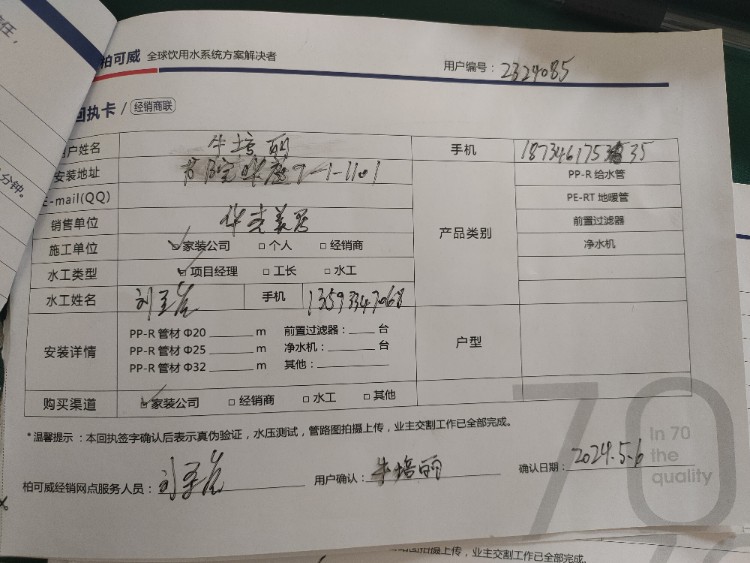 柏可威 全球饮用水系统方案解决者 用户编号：2324085
回执卡 / 经销商联
用户姓名 牛培丽 手机
安装地址 7-1-1101 PP-R 给水管
E-mail(QQ) PE-RT 地暖管
销售单位 华光美居 产品类别 前置过滤器
施工单位 家装公司 □ 个人 □ 经销商 净水机
水工类型 项目经理 □ 工长 □ 水工
水工姓名 手机 13593347068
安装详情 户型
PP-R 管材 Φ20 ______ m 前置过滤器：____ 台
PP-R 管材 Φ25 ______ m 净水机：____ 台
PP-R 管材 Φ32 ______ m 其他：______
购买渠道 家装公司 □ 经销商 □ 水工 □ 其他
*温馨提示：本回执签字确认后表示真伪验证，水压测试，管路图拍摄上传，业主交割工作已全部完成。
柏可威经销网点服务人员： 用户确认：牛培丽 确认日期：2024.5.6
70
In 70
the
quality
拍摄上传，业主交割工作已全部完成。